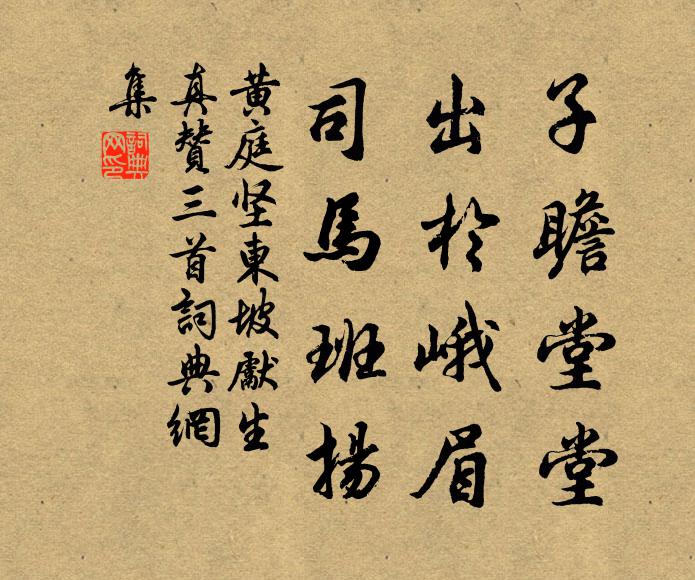 子瞻堂堂
出於峨眉
司馬班揚
黄庭坚東坡獻生
真贊三首詞典網
集
詞典
网印